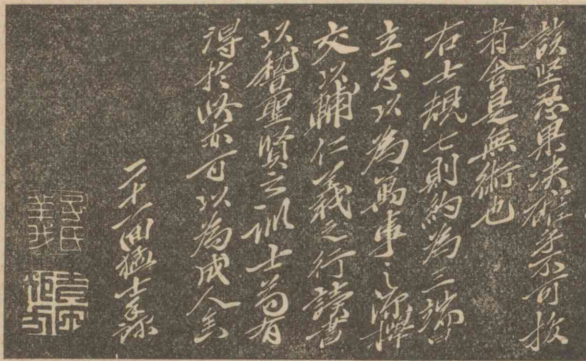 故堅忍果决確乎不可拔
者舍是無術也
右士規七則約為三端曰
立志以為萬事之源擇
交以輔仁義之行讀書
以稽聖賢之訓士苟有
得於此亦可以為成人矣
二十一回猛士手錄